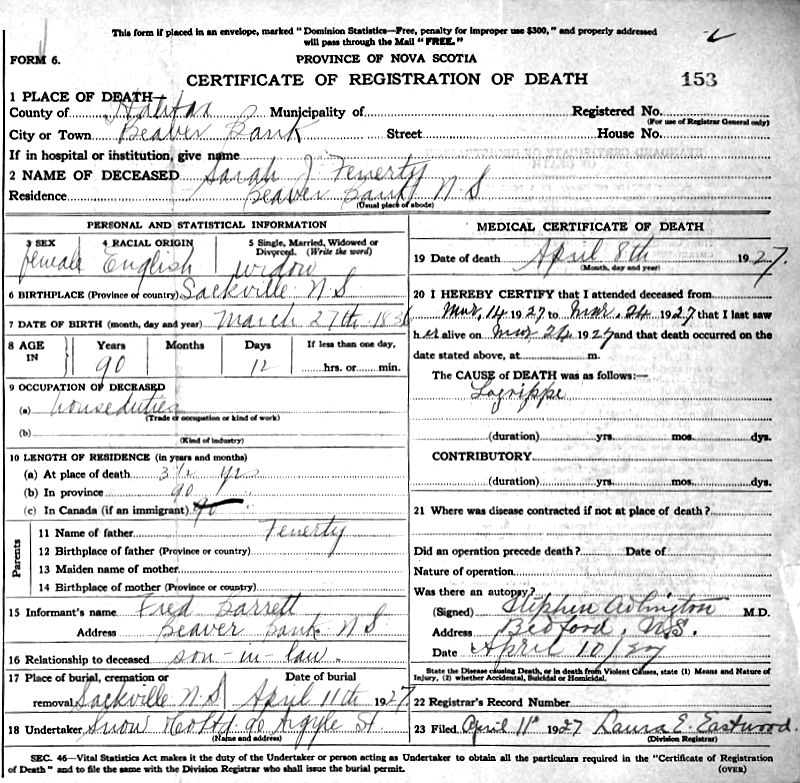 This form if placed in an envelope, marked "Dominion Statistics—Free, penalty for improper use $300," and properly addressed
will pass through the Mail "FREE."
FORM 6.
PROVINCE OF NOVA SCOTIA
CERTIFICATE OF REGISTRATION OF DEATH 153
1 PLACE OF DEATH—
County of Halifax Municipality of Registered No.
(For use of Registrar General only)
City or Town Beaver Bank Street House No.
If in hospital or institution, give name
2 NAME OF DECEASED Sarah J Fenerty
Residence Beaver Bank N S
(Usual place of abode)
PERSONAL AND STATISTICAL INFORMATION
3 SEX 4 RACIAL ORIGIN 5 Single, Married, Widowed or
Divorced. (Write the word)
female English widow
6 BIRTHPLACE (Province or country) Sackville N S
7 DATE OF BIRTH (month, day and year) March 27th 1836
8 AGE Years Months Days If less than one day,
IN 90 12 hrs. or min.
9 OCCUPATION OF DECEASED
(a) house duties
(Trade or occupation or kind of work)
(b)
(Kind of industry)
10 LENGTH OF RESIDENCE (in years and months)
(a) At place of death 3 1/2 yrs
(b) In province 90 "
(c) In Canada (if an immigrant) 90
Parents
11 Name of father Fenerty
12 Birthplace of father (Province or country)
13 Maiden name of mother
14 Birthplace of mother (Province or country)
15 Informant's name Fred Barrett
Address Beaver Bank N S
16 Relationship to deceased son-in-law.
17 Place of burial, cremation or Date of burial
removal Sackville N S April 11th 1927
18 Undertaker Snow Co Ltd Argyle St
(Name and address)
MEDICAL CERTIFICATE OF DEATH
19 Date of death April 8th 1927.
(Month, day and year)
20 I HEREBY CERTIFY that I attended deceased from
Mar. 14 1927 to Mar. 24 1927 that I last saw
h er alive on Mar 24 1927 and that death occurred on the
date stated above, at m.
The CAUSE of DEATH was as follows:—
Lagrippe
(duration) yrs. mos. dys.
CONTRIBUTORY
(duration) yrs. mos. dys.
21 Where was disease contracted if not at place of death?
Did an operation precede death? Date of
Nature of operation
Was there an autopsy?
(Signed) Stephen Adlington M.D.
Address Bedford, N.S.
Date April 10/27
State the Disease causing Death, or in death from Violent Causes, state (1) Means and Nature of
Injury, (2) whether Accidental, Suicidal or Homicidal.
22 Registrar's Record Number
23 Filed April 11th 1927 Laura E. Eastwood.
(Division Registrar)
SEC. 46—Vital Statistics Act makes it the duty of the Undertaker or person acting as Undertaker to obtain all the particulars required in the "Certificate of Registration
of Death" and to file the same with the Division Registrar who shall issue the burial permit. (OVER)